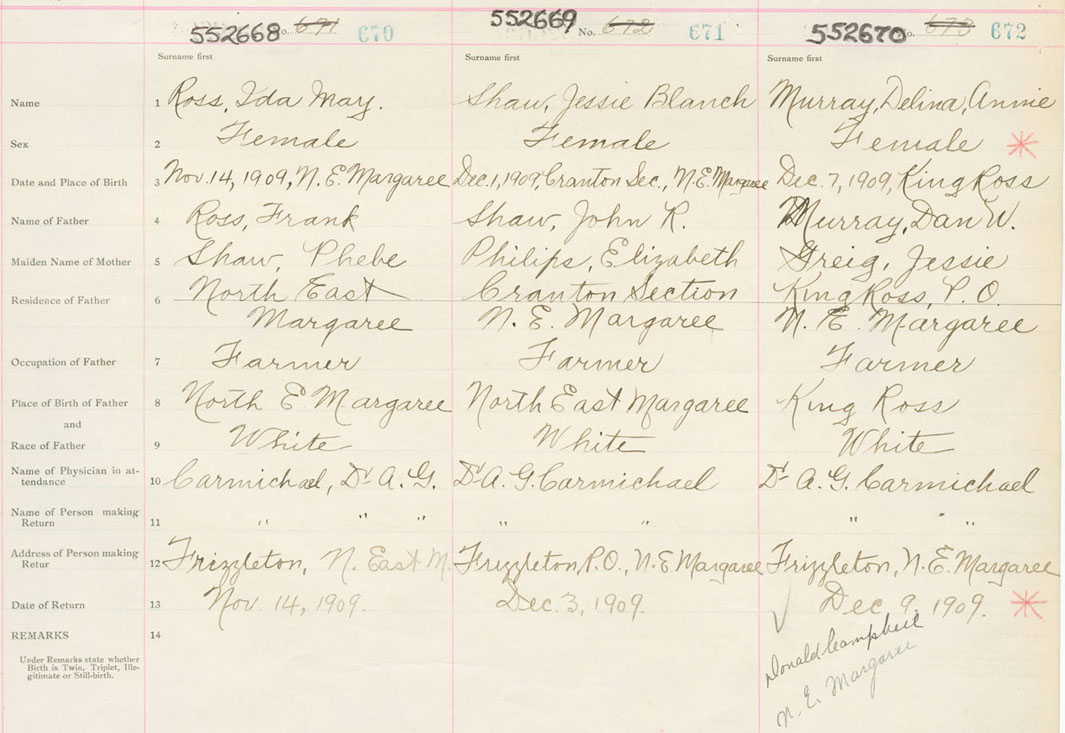 552668 No. 671 670
552669 No. 672 671
552670 No. 673 672
Surname first Surname first Surname first
Name 1 Ross, Ida May. Shaw, Jessie Blanch Murray, Delina, Annie
Sex 2 Female Female Female
Date and Place of Birth 3 Nov. 14, 1909, N. E. Margaree Dec. 1, 1909, Cranton Sec., N. E. Margaree Dec. 7, 1909, King Ross
Name of Father 4 Ross, Frank Shaw, John R. Murray, Dan W.
Maiden Name of Mother 5 Shaw, Phebe Philips, Elizabeth Greig, Jessie
Residence of Father 6 North East Cranton Section King Ross, P. O.
Margaree N. E. Margaree N. E. Margaree
Occupation of Father 7 Farmer Farmer Farmer
Place of Birth of Father 8 North E Margaree North East Margaree King Ross
and
Race of Father 9 White White White
Name of Physician in at-
tendance 10 Carmichael, Dr A. G. Dr A. G. Carmichael Dr A. G. Carmichael
Name of Person making
Return 11 " " " " " " " "
Address of Person making
Retur 12 Frizzleton, N. East M. Frizzleton, P.O., N. E Margaree Frizzleton, N. E. Margaree
Date of Return 13 Nov. 14, 1909. Dec. 3, 1909. Dec 9, 1909.
REMARKS 14
Under Remarks state whether
Birth is Twin, Triplet, Ille-
gitimate or Still-birth.
Donald Campbell
N. E. Margaree